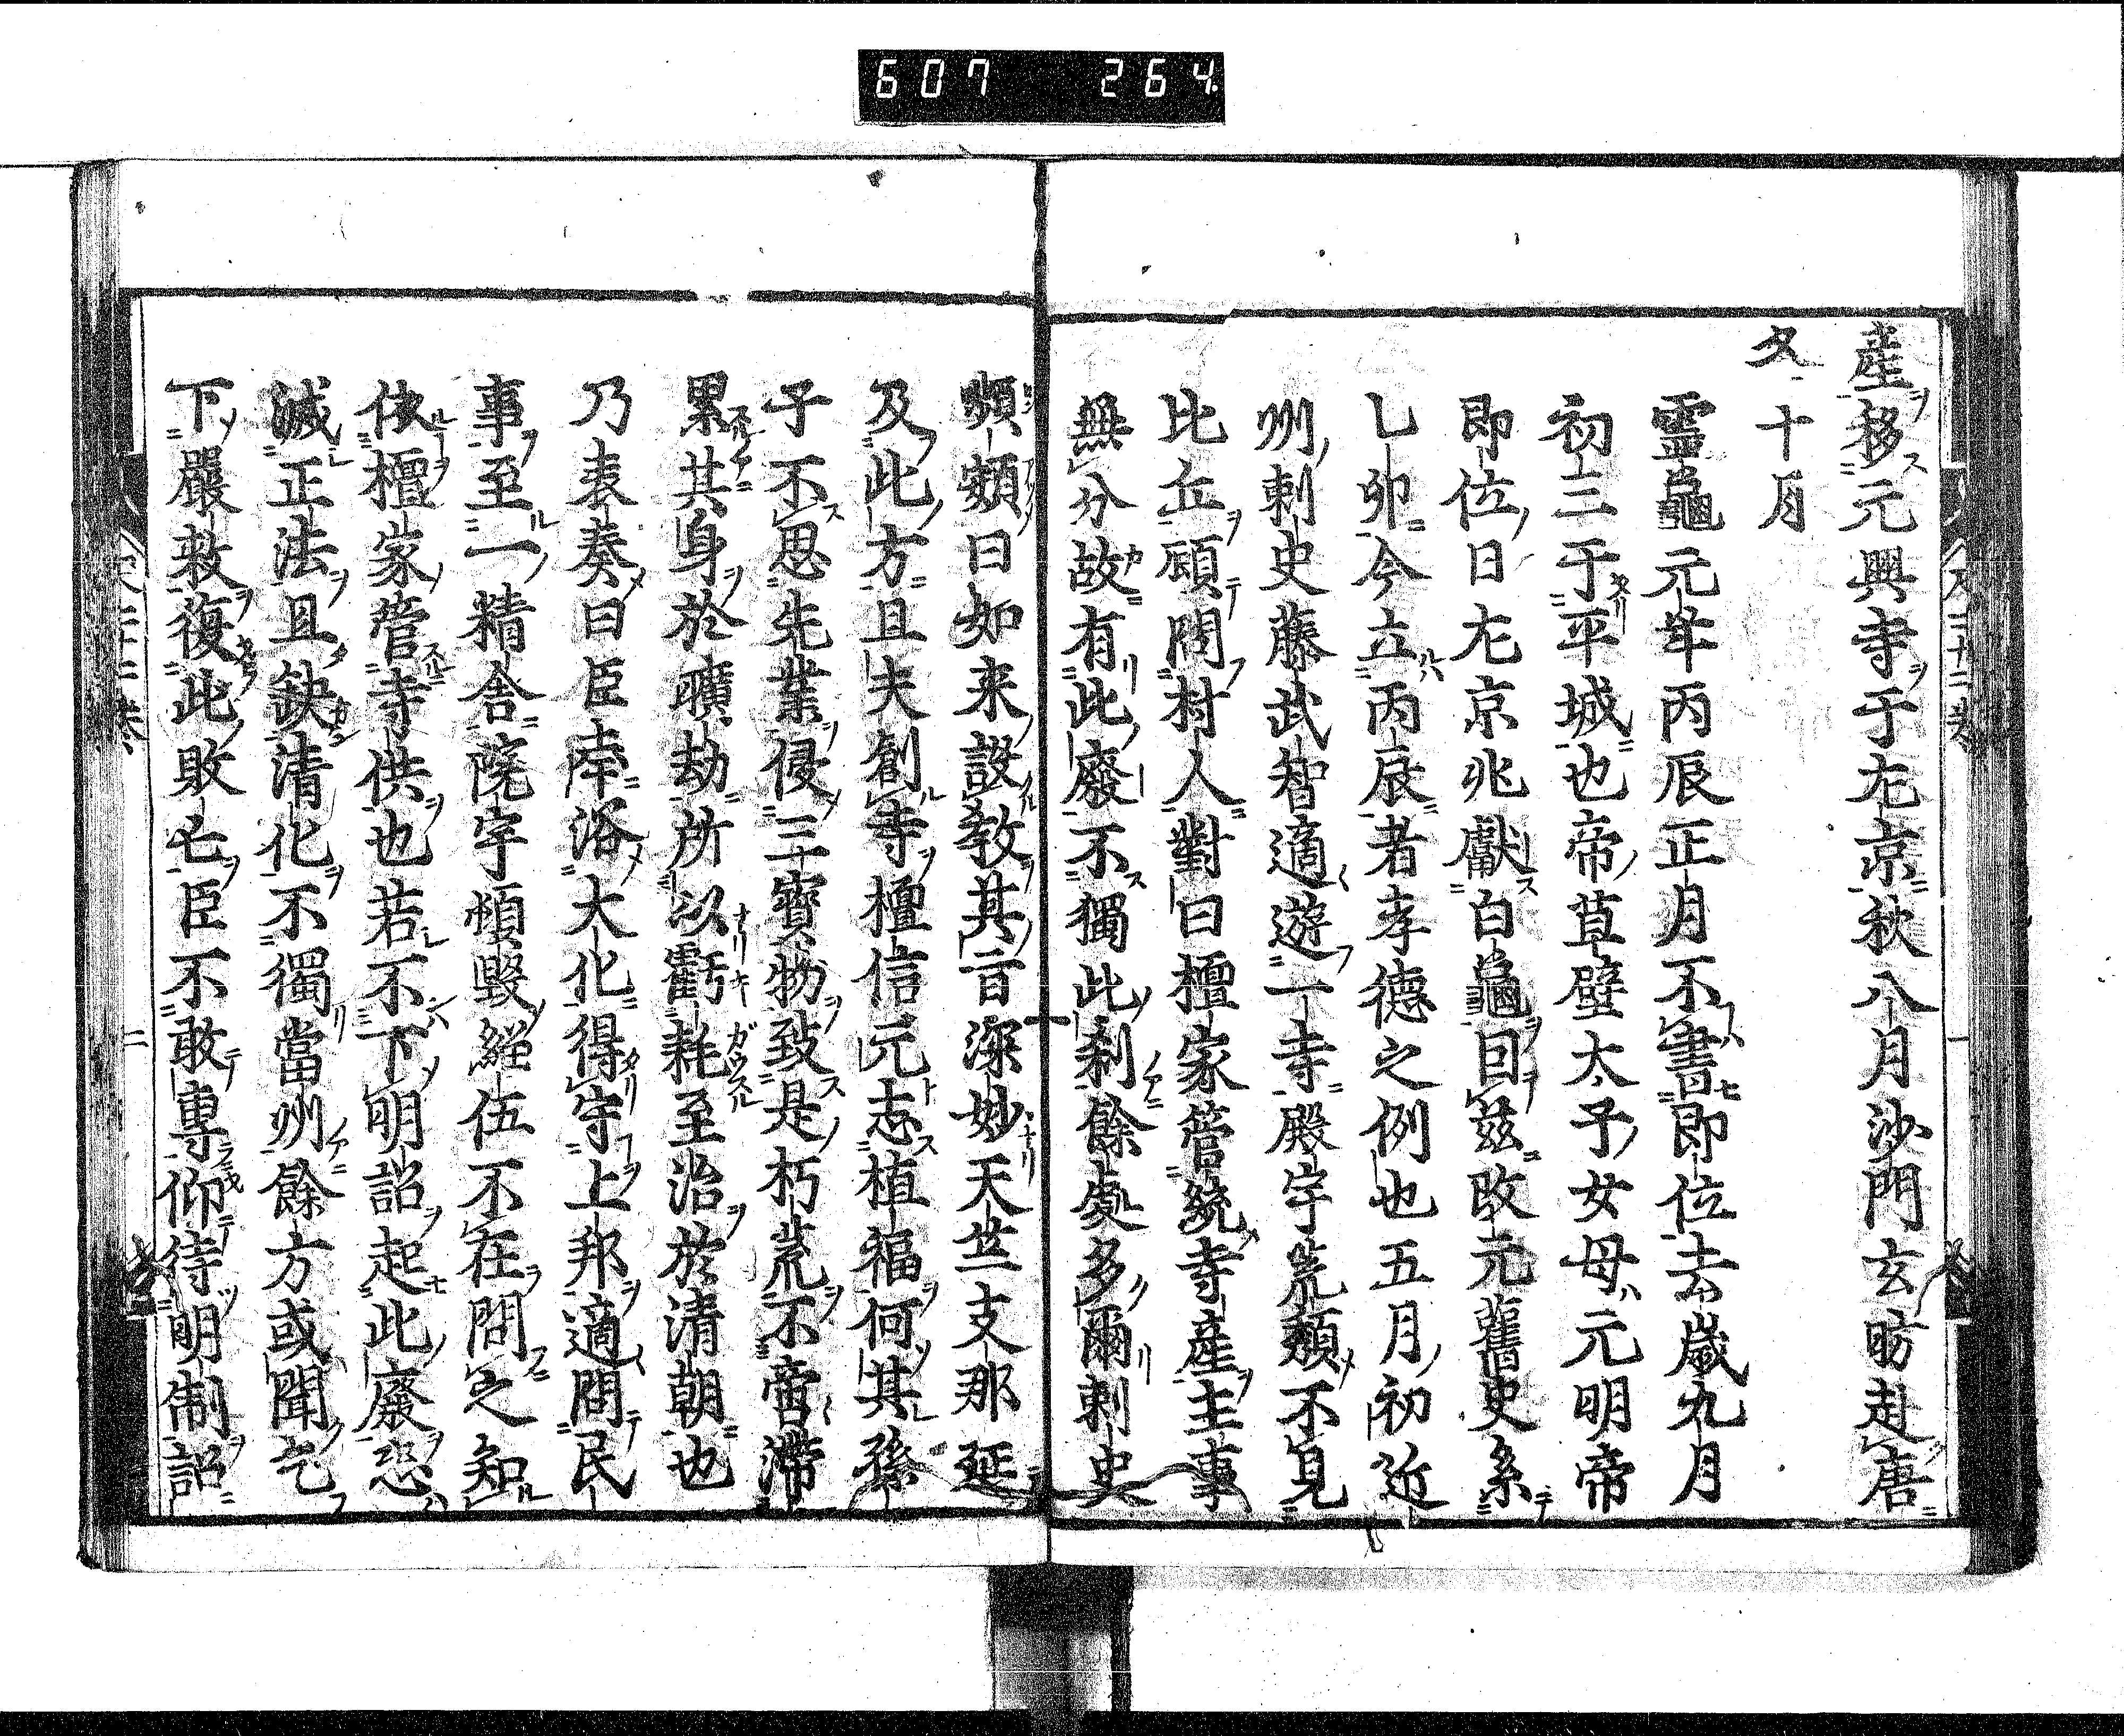 607 264
産移元興寺于左京秋八月沙門玄昉赴唐
冬十月
靈龜元年丙辰正月不書即位去歲九月
初三于平城也帝草壁太子女母元明帝
即位日左京兆獻白龜因茲改元舊史系
乚卯今立丙辰者孝德之例也五月初近
州刺史藤武智適遊一寺殿宇荒頽不見
比丘顧問村人對曰檀家管統寺産主事
無分故有此廢不獨此刹餘處多爾刺史
頻顣曰如来設教其旨深妙天竺支那延
及此方且夫創寺檀信元志植福何其孫
子不思先業侵三寳物致是朽荒不啻滯
累其身於曠劫所以虧耗至治於清朝也
乃表奏曰臣幸浴大化得守上邦適問民
事至一精舍院宇傾毀緇伍不在問之知
依檀家管寺供也若不下明詔起此廢恐
滅正法且缺清化不獨當州餘方或聞乞
下嚴敕復此敗亡臣不敢專仰待明制詔